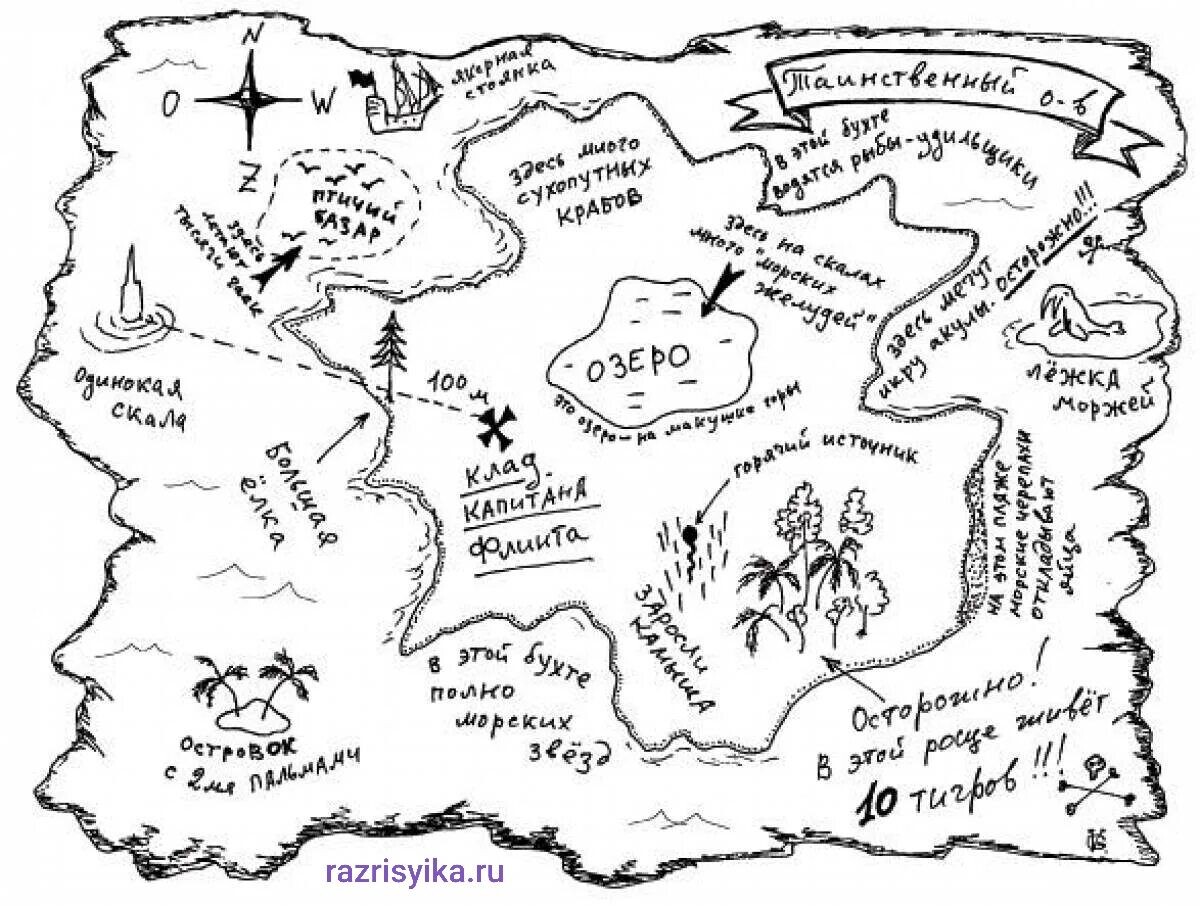 N
O
W
Z
якорная
стоянка
Таинственный о-в
в этой бухте
водятся рыбы-удильщики
здесь много
сухопутных
крабов
птичий
базар
здесь
летают
тысячи чаек
здесь на скалах
много "морских
желудей"
здесь мечут
икру акулы. осторожно!!!
лёжка
моржей
одинокая
скала
100 м
ОЗЕРО
это озеро — на макушке горы
клад
капитана
Флинта
большая
ёлка
горячий источник
на этом пляже
морские черепахи
откладывают
яйца
заросли
камыша
в этой бухте
полно
морских
звёзд
островок
с 2мя пальмами
Осторожно!
В этой роще живёт
10 тигров!!!
razrisyika.ru